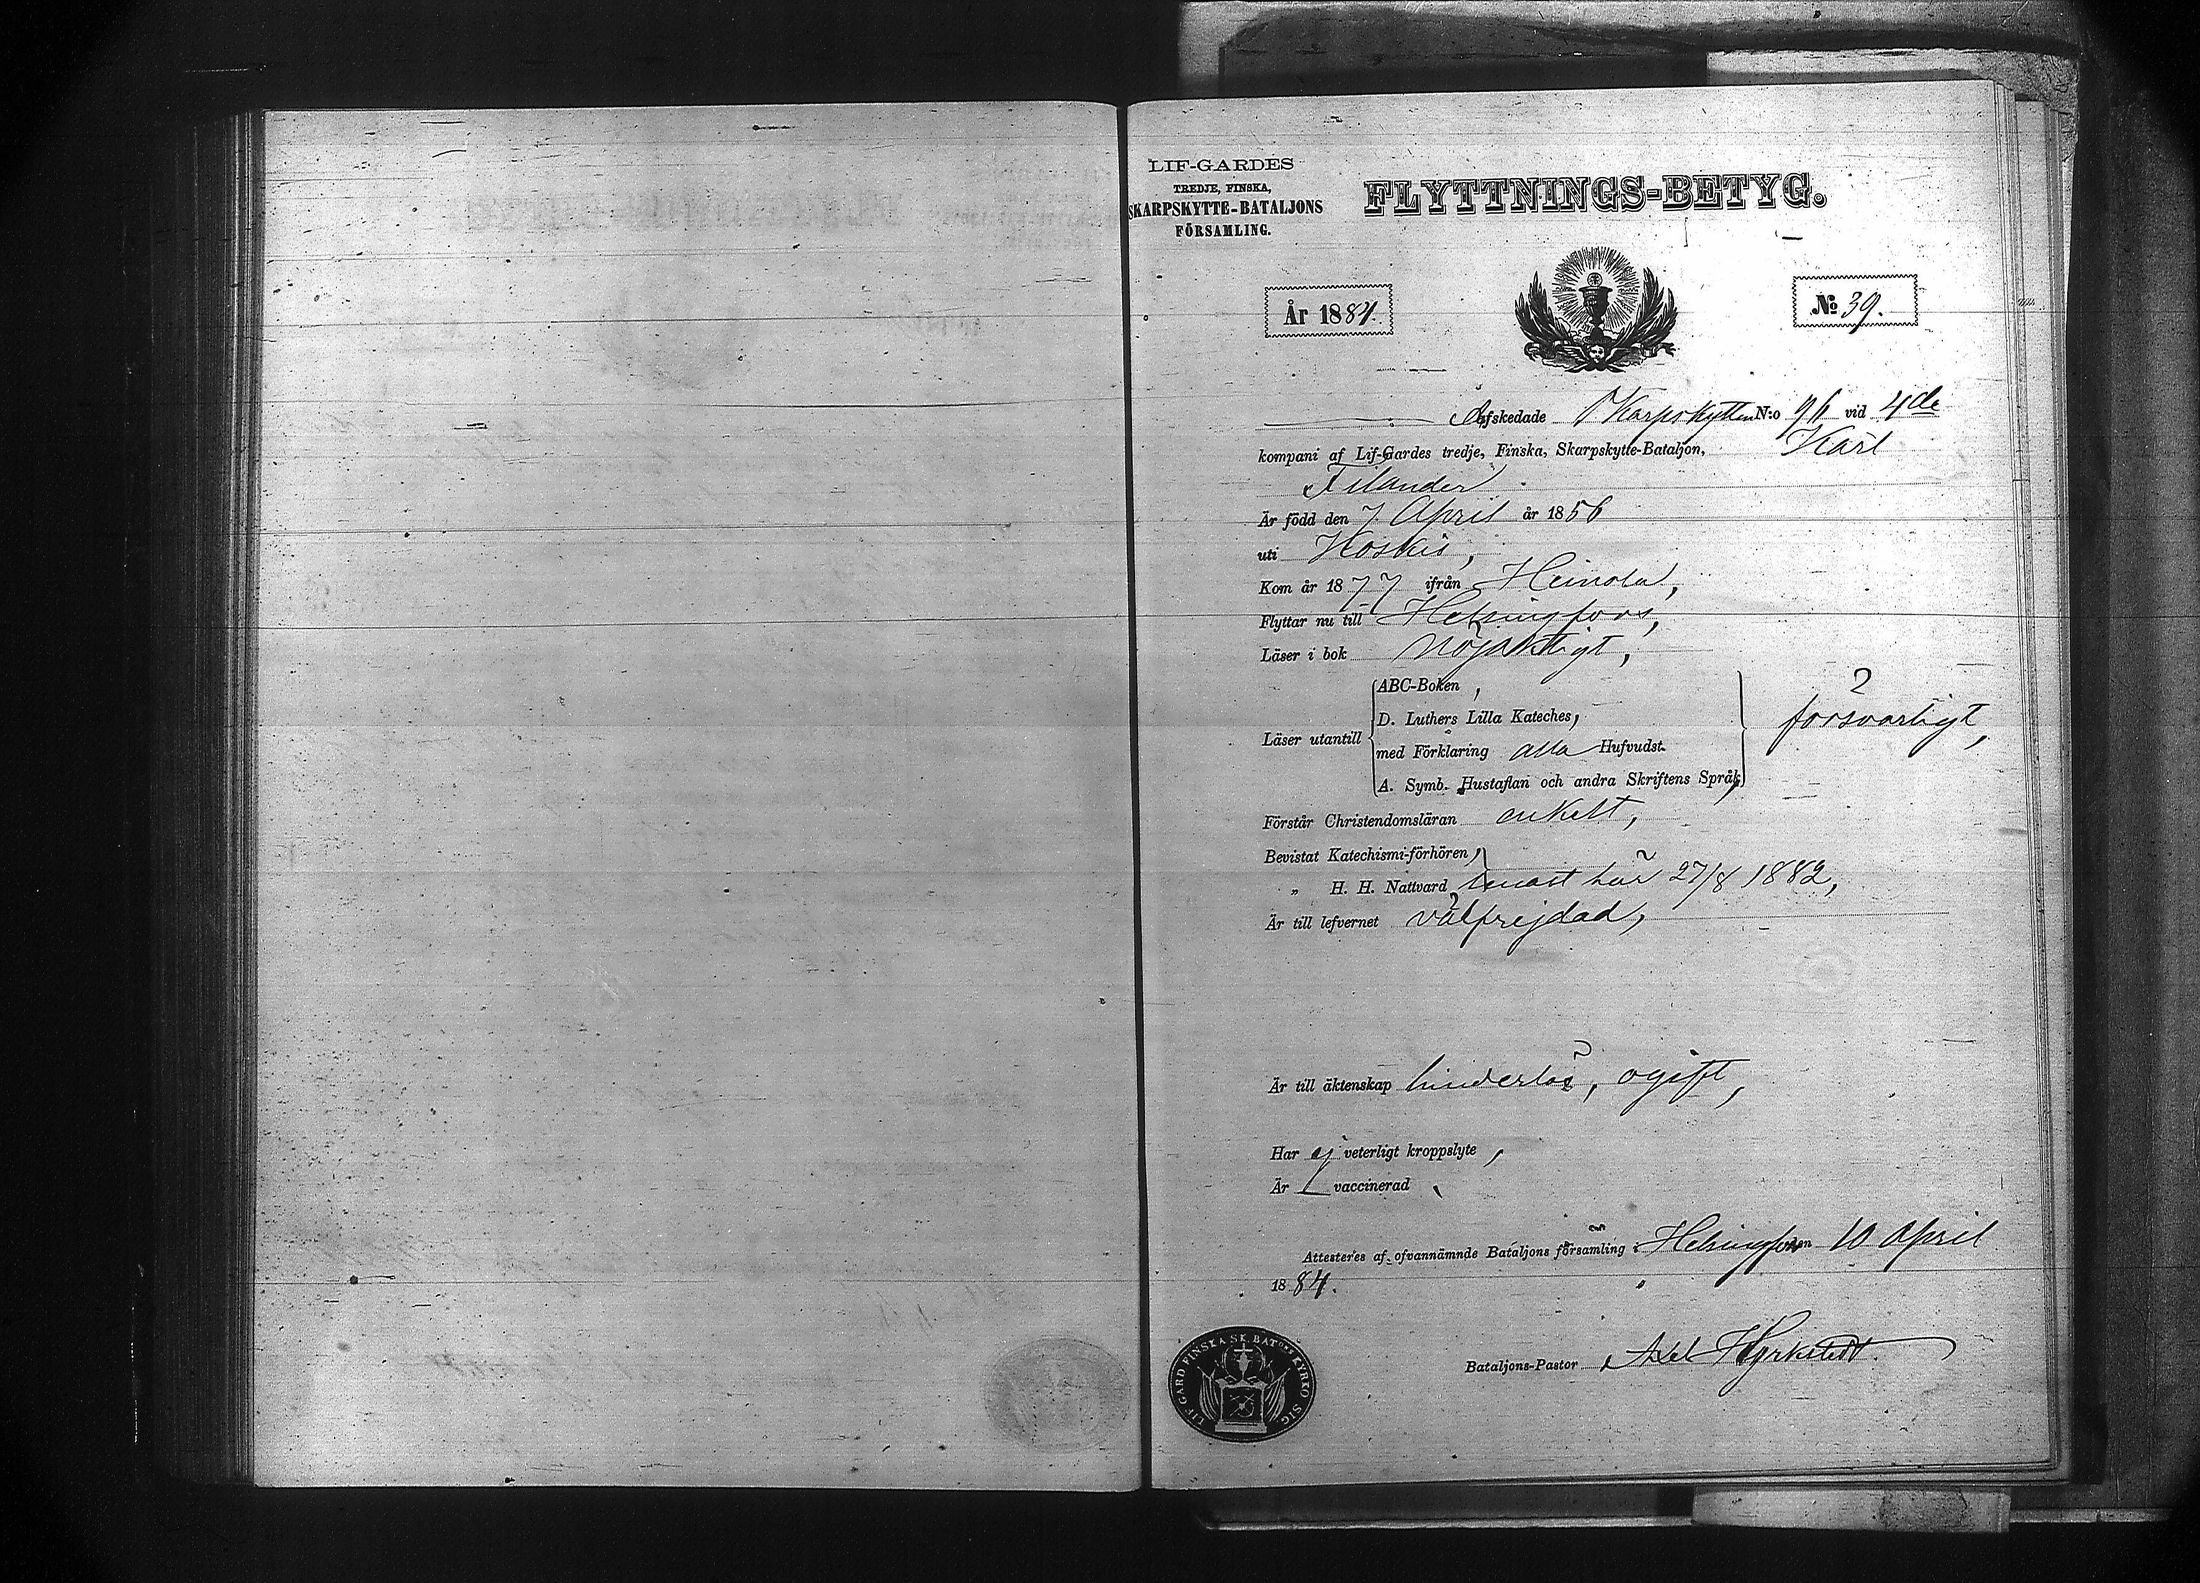 LIF-GARDES
TREDJE, FINSKA,
SKARPSKYTTE-BATALJONS
FÖRSAMLING.
FLYTTNINGS-BETYG.
År 1884.
No 39.
Afskedade Skarpskytten N:o 96 vid 4de
kompani af Lif-Gardes tredje, Finska, Skarpskytte-Bataljon, Karl
Filander
Är född den 7 April år 1856
uti Koskis,
Kom år 1877 ifrån Heinola,
Flyttar nu till Helsingfors,
Läser i bok nöjaktigt,
Läser utantill
ABC-Boken,
D. Luthers Lilla Kateches,
med Förklaring alla Hufvudst.
A. Symb. Hustaflan och andra Skriftens Språk,
försvarligt,
Förstår Christendomsläran enkelt,
Bevistat Katechismi-förhören,
„ H. H. Nattvard senast här 27/8 1882,
Är till lefvernet välfrejdad,
Är till äktenskap hinderlös, ogift,
Har ej veterligt kroppslyte,
Är vaccinerad
Attesteres af ofvannämnde Bataljons församling i Helsingfors den 10 April
1884.
Bataljons-Pastor Axel Hyrkstedt.
LIF-GARD. FINSKA SK. BAT:ONS KYRKO SIG